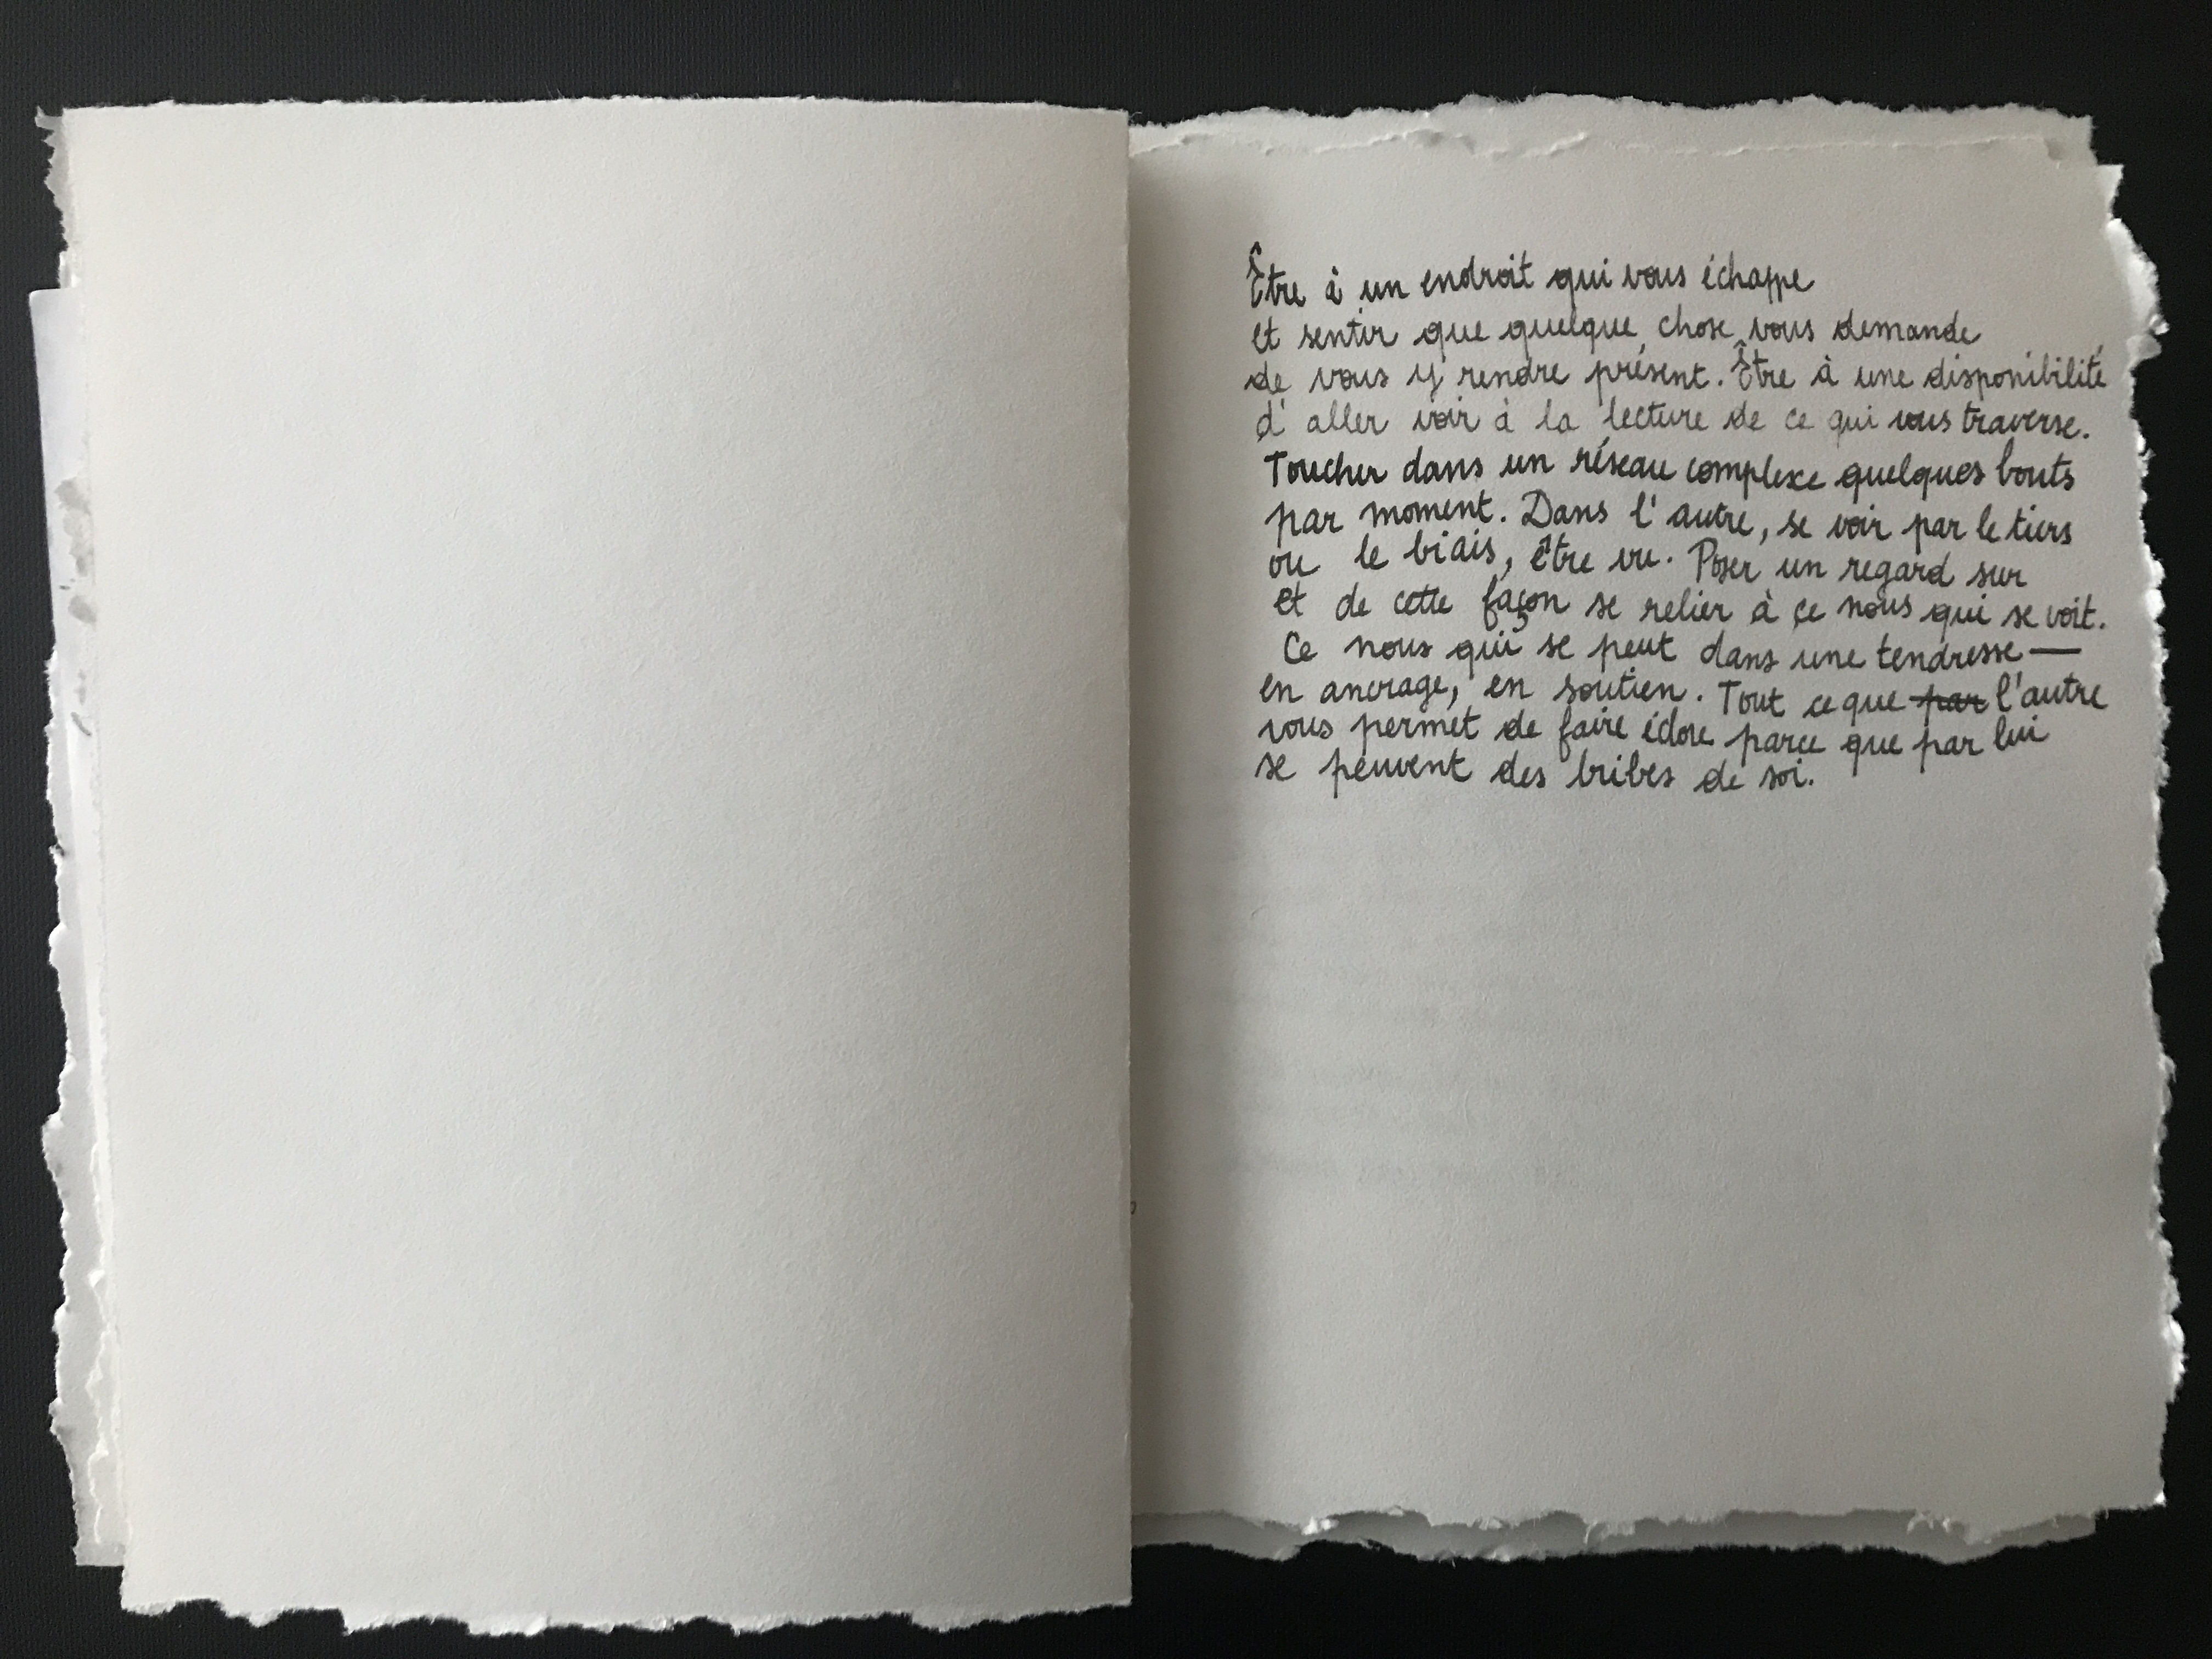 Être à un endroit qui vous échappe
et sentir que quelque chose vous demande
de vous y rendre présent. Être à une disponibilité
d'aller voir à la lecture de ce qui vous traverse.
Toucher dans un réseau complexe quelques bouts
par moment. Dans l'autre, se voir par le tiers
ou le biais, être vu. Poser un regard sur
et de cette façon se relier à ce nous qui se voit.
Ce nous qui se peut dans une tendresse —
en ancrage, en soutien. Tout ce que par l'autre
vous permet de faire éclore parce que par lui
se peuvent des bribes de soi.